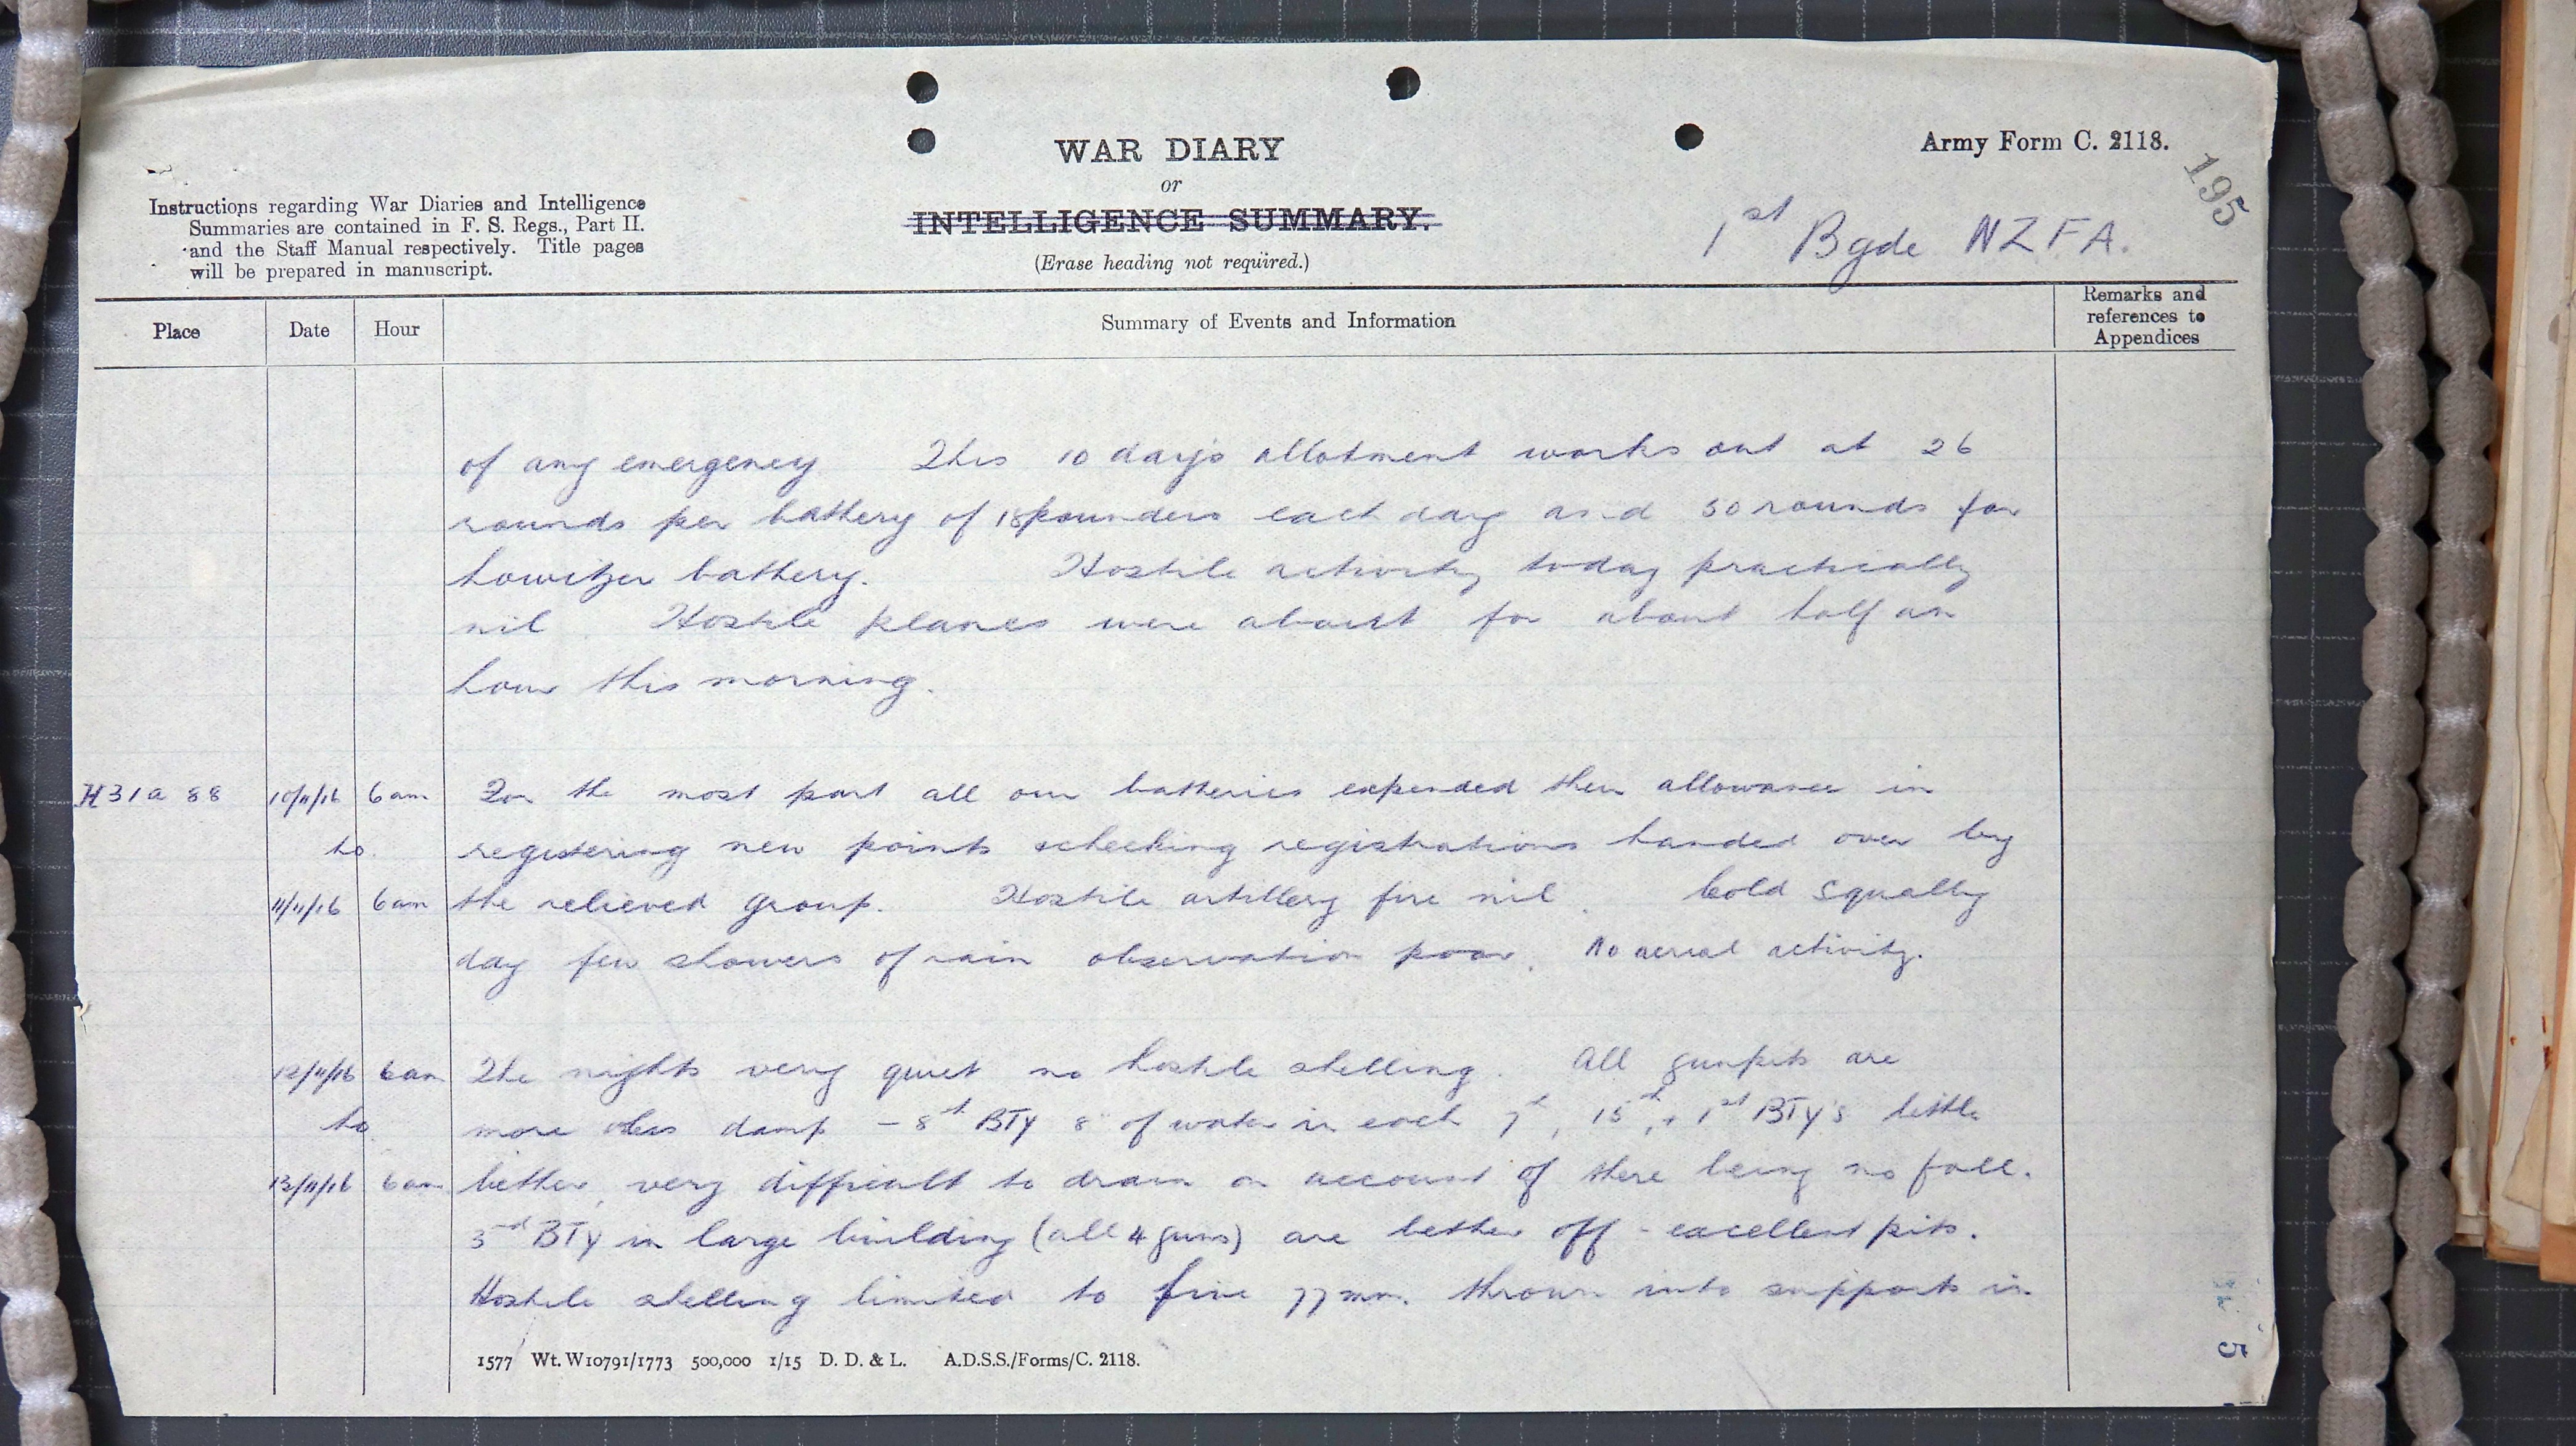 WAR DIARY
or
INTELLIGENCE SUMMARY.
(Erase heading not required.)
Army Form C. 2118.
195
1st Bgde NZFA.
Instructions regarding War Diaries and Intelligence
Summaries are contained in F. S. Regs., Part II.
and the Staff Manual respectively. Title pages
will be prepared in manuscript.
Place Date Hour Summary of Events and Information Remarks and references to Appendices
of any emergency This 10 days allotment works out at 26
rounds per battery of 18pounders each day and 50 rounds for
howitzer battery. Hostile activity today practically
nil Hostile planes were about for about half an
hour this morning.
H31a 88 10/11/16 6am For the most part all our batteries expended their allowance in
to registering new points checking registrations handed over by
11/11/16 6am the relieved group. Hostile artillery fire nil. Cold squally
day few showers of rain observation poor. No aerial activity.
12/11/16 6am The nights very quiet no hostile shelling. All gunpits are
to more or less damp – 8th BTy 8" of water in each 7th, 15th, + 1st BTy's little
13/11/16 6am better, very difficult to drain on account of there being no fall.
3rd BTy in large building (all 4 guns) are better off - excellent pits.
Hostile shelling limited to five 77mm. thrown into supports in
1577 Wt. W10791/1773 500,000 1/15 D. D. & L. A.D.S.S./Forms/C. 2118.
5